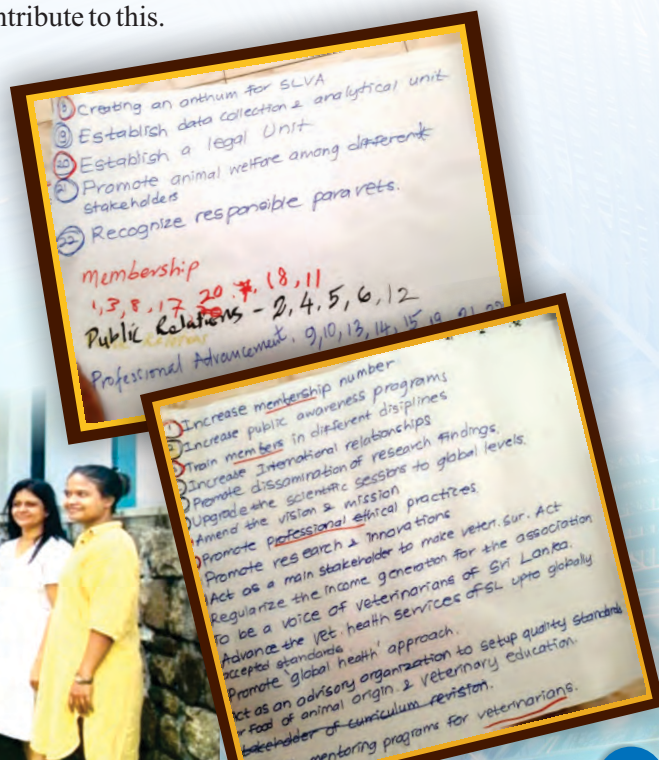 ntribute to this.
18 Creating an anthum for SLVA
19 Establish data collection & analytical unit
20 Establish a legal Unit
21 Promote animal welfare among different
stakeholders
22 Recognize responsible paravets.
membership
1, 3, 8, 17, 20, 7, 18, 11
Public Relations - 2, 4, 5, 6, 12
Professional Advancement. 9, 10, 13, 14, 15, 19, 21, 22
1 Increase membership number
2 Increase public awareness programs
3 Train members in different disiplines
Increase International relationships
Promote dissamination of research findings.
Upgrade the scientific sessions to global levels.
Amend the vision & mission
Promote professional ethical practices.
Promote research & innovations
Act as a main stakeholder to make veteri. sur. Act
Regularize the income generation for the association
To be a voice of veterinarians of Sri Lanka.
Advance the vet. health services of SL upto globally
accepted standards.
Promote 'global health' approach.
ct as an advisory organization to setup quality standards
food of animal origin & veterinary education.
takeholder of curriculum revision.
mentoring programs for veterinarians.